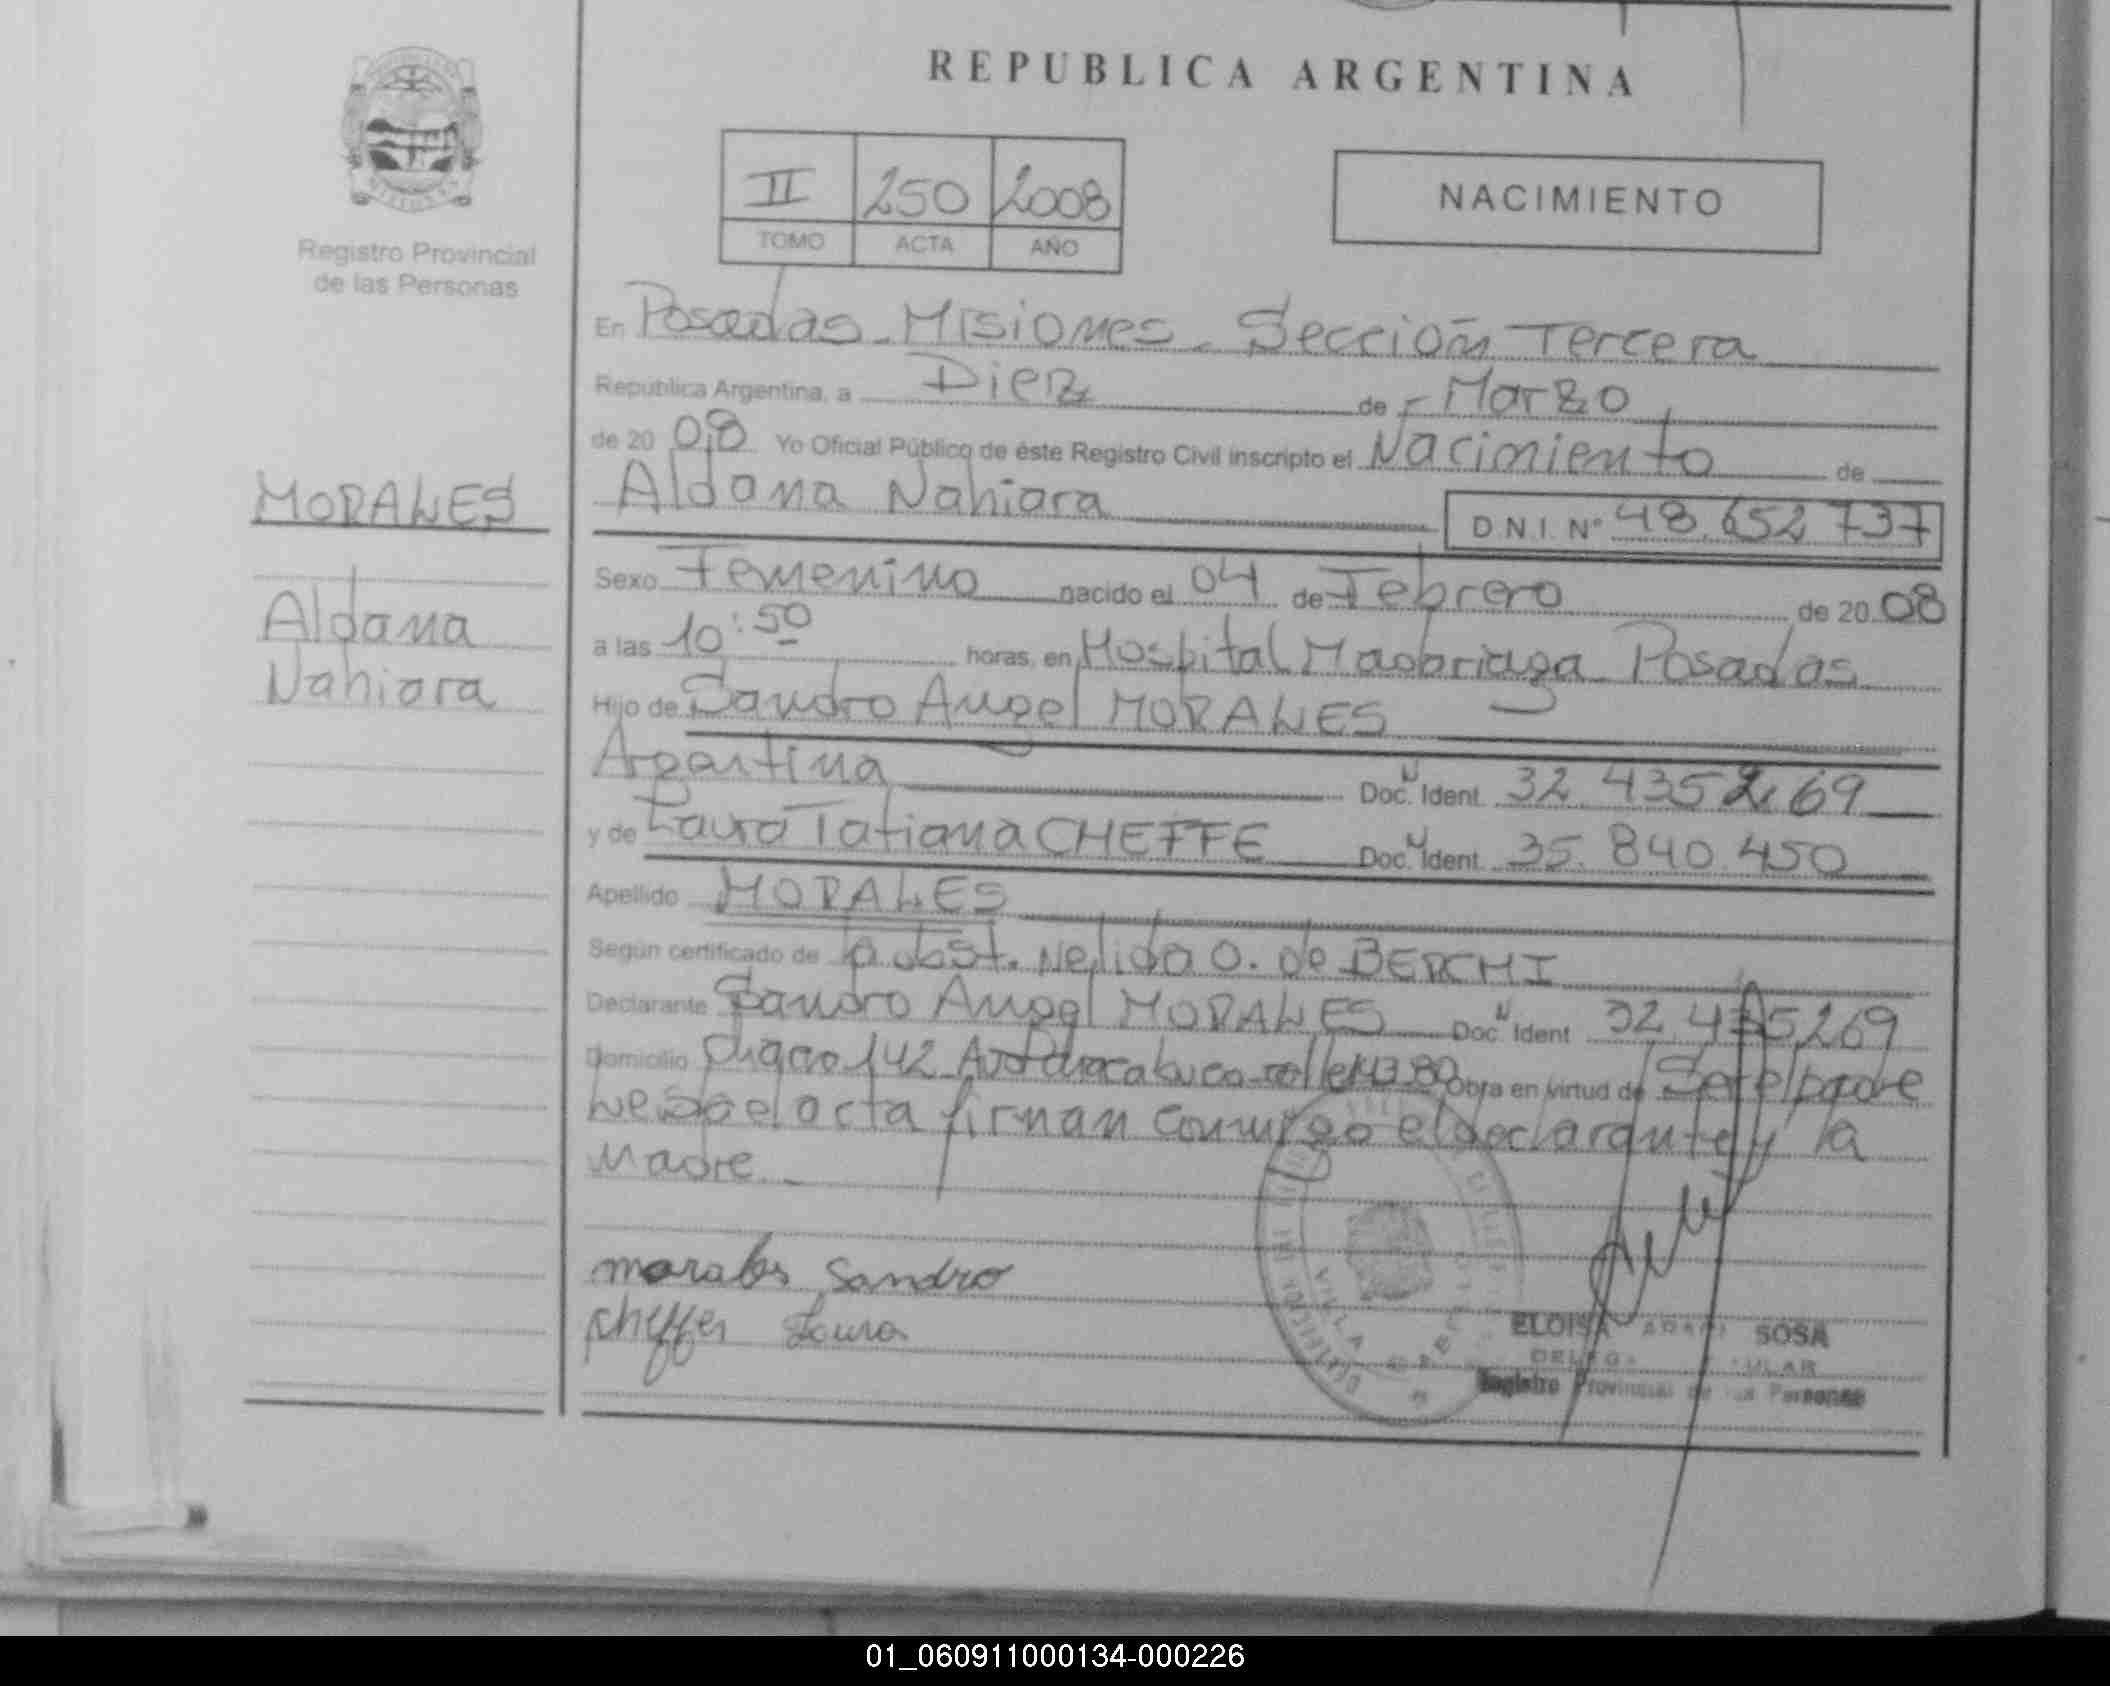 REPUBLICA ARGENTINA
II 250 2008
TOMO ACTA AÑO
NACIMIENTO
Registro Provincial
de las Personas
En Posadas - Misiones - Sección Tercera
República Argentina, a Diez de Marzo
de 20 08 Yo Oficial Público de éste Registro Civil inscripto el Nacimiento de
Aldana Nahiara D.N.I. Nº 48.652 737
MORALES
Aldana
Nahiara
Sexo Femenino nacido el 04 de Febrero de 20 08
a las 10:50 horas, en Hospital Madariaga Posadas
Hijo de Sandro Angel MORALES
Argentina Doc. Ident. 32 435 269
y de Laura Tatiana CHEFFE Doc. Ident. 35.840.450
Apellido MORALES
Según certificado de la obst. Nelida O. de BERCHI
Declarante Sandro Angel MORALES Doc. Ident 32.435.269
Domicilio Chaco 142 Obra en virtud de Ser el padre
el acta firman conmigo el declarante y la
Madre
morales Sandro
cheffer Laura
VILLA
ELOISA SOSA
Registro Provincial de las Personas
01_060911000134-000226